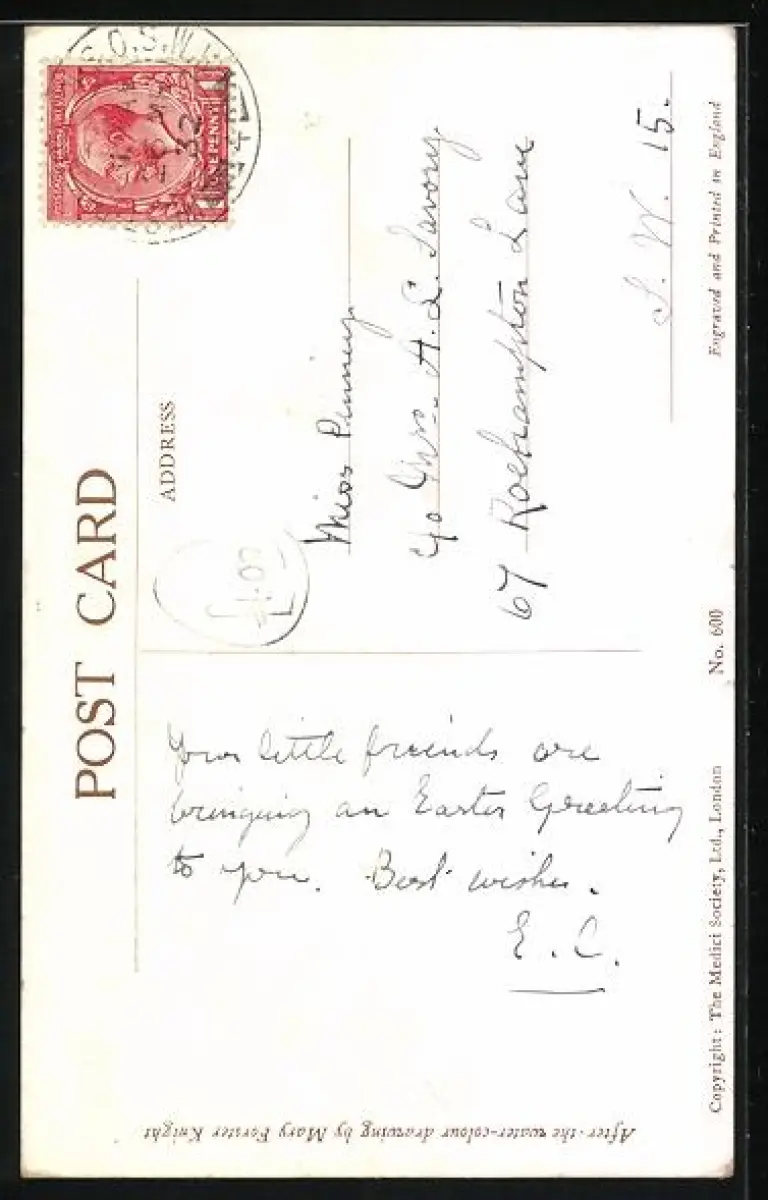 POST CARD
ADDRESS
ONE PENNY
32
Miss Pinney
c/o Mrs. A. L. Savory
67 Roehampton Lane
S. W. 15.
Your little friends are
bringing an Easter Greeting
to you. Best wishes.
E. C.
After the water-colour drawing by Mary Forster Knight
Copyright: The Medici Society, Ltd., London
No. 600
Engraved and Printed in England